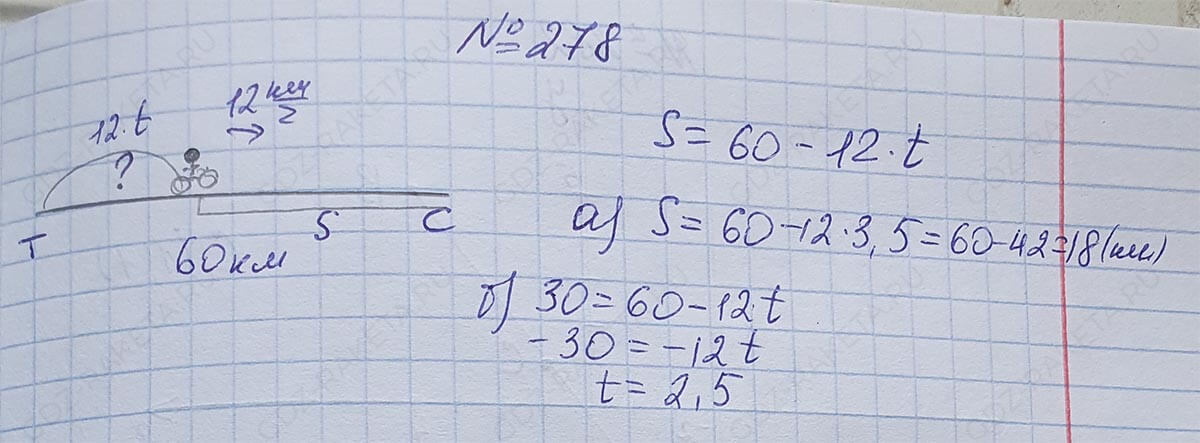 №278
12км/г
12·t
?
T
S
C
60км
S=60-12·t
а) S=60-12·3,5=60-42=18(км)
б) 30=60-12·t
-30=-12t
t=2,5